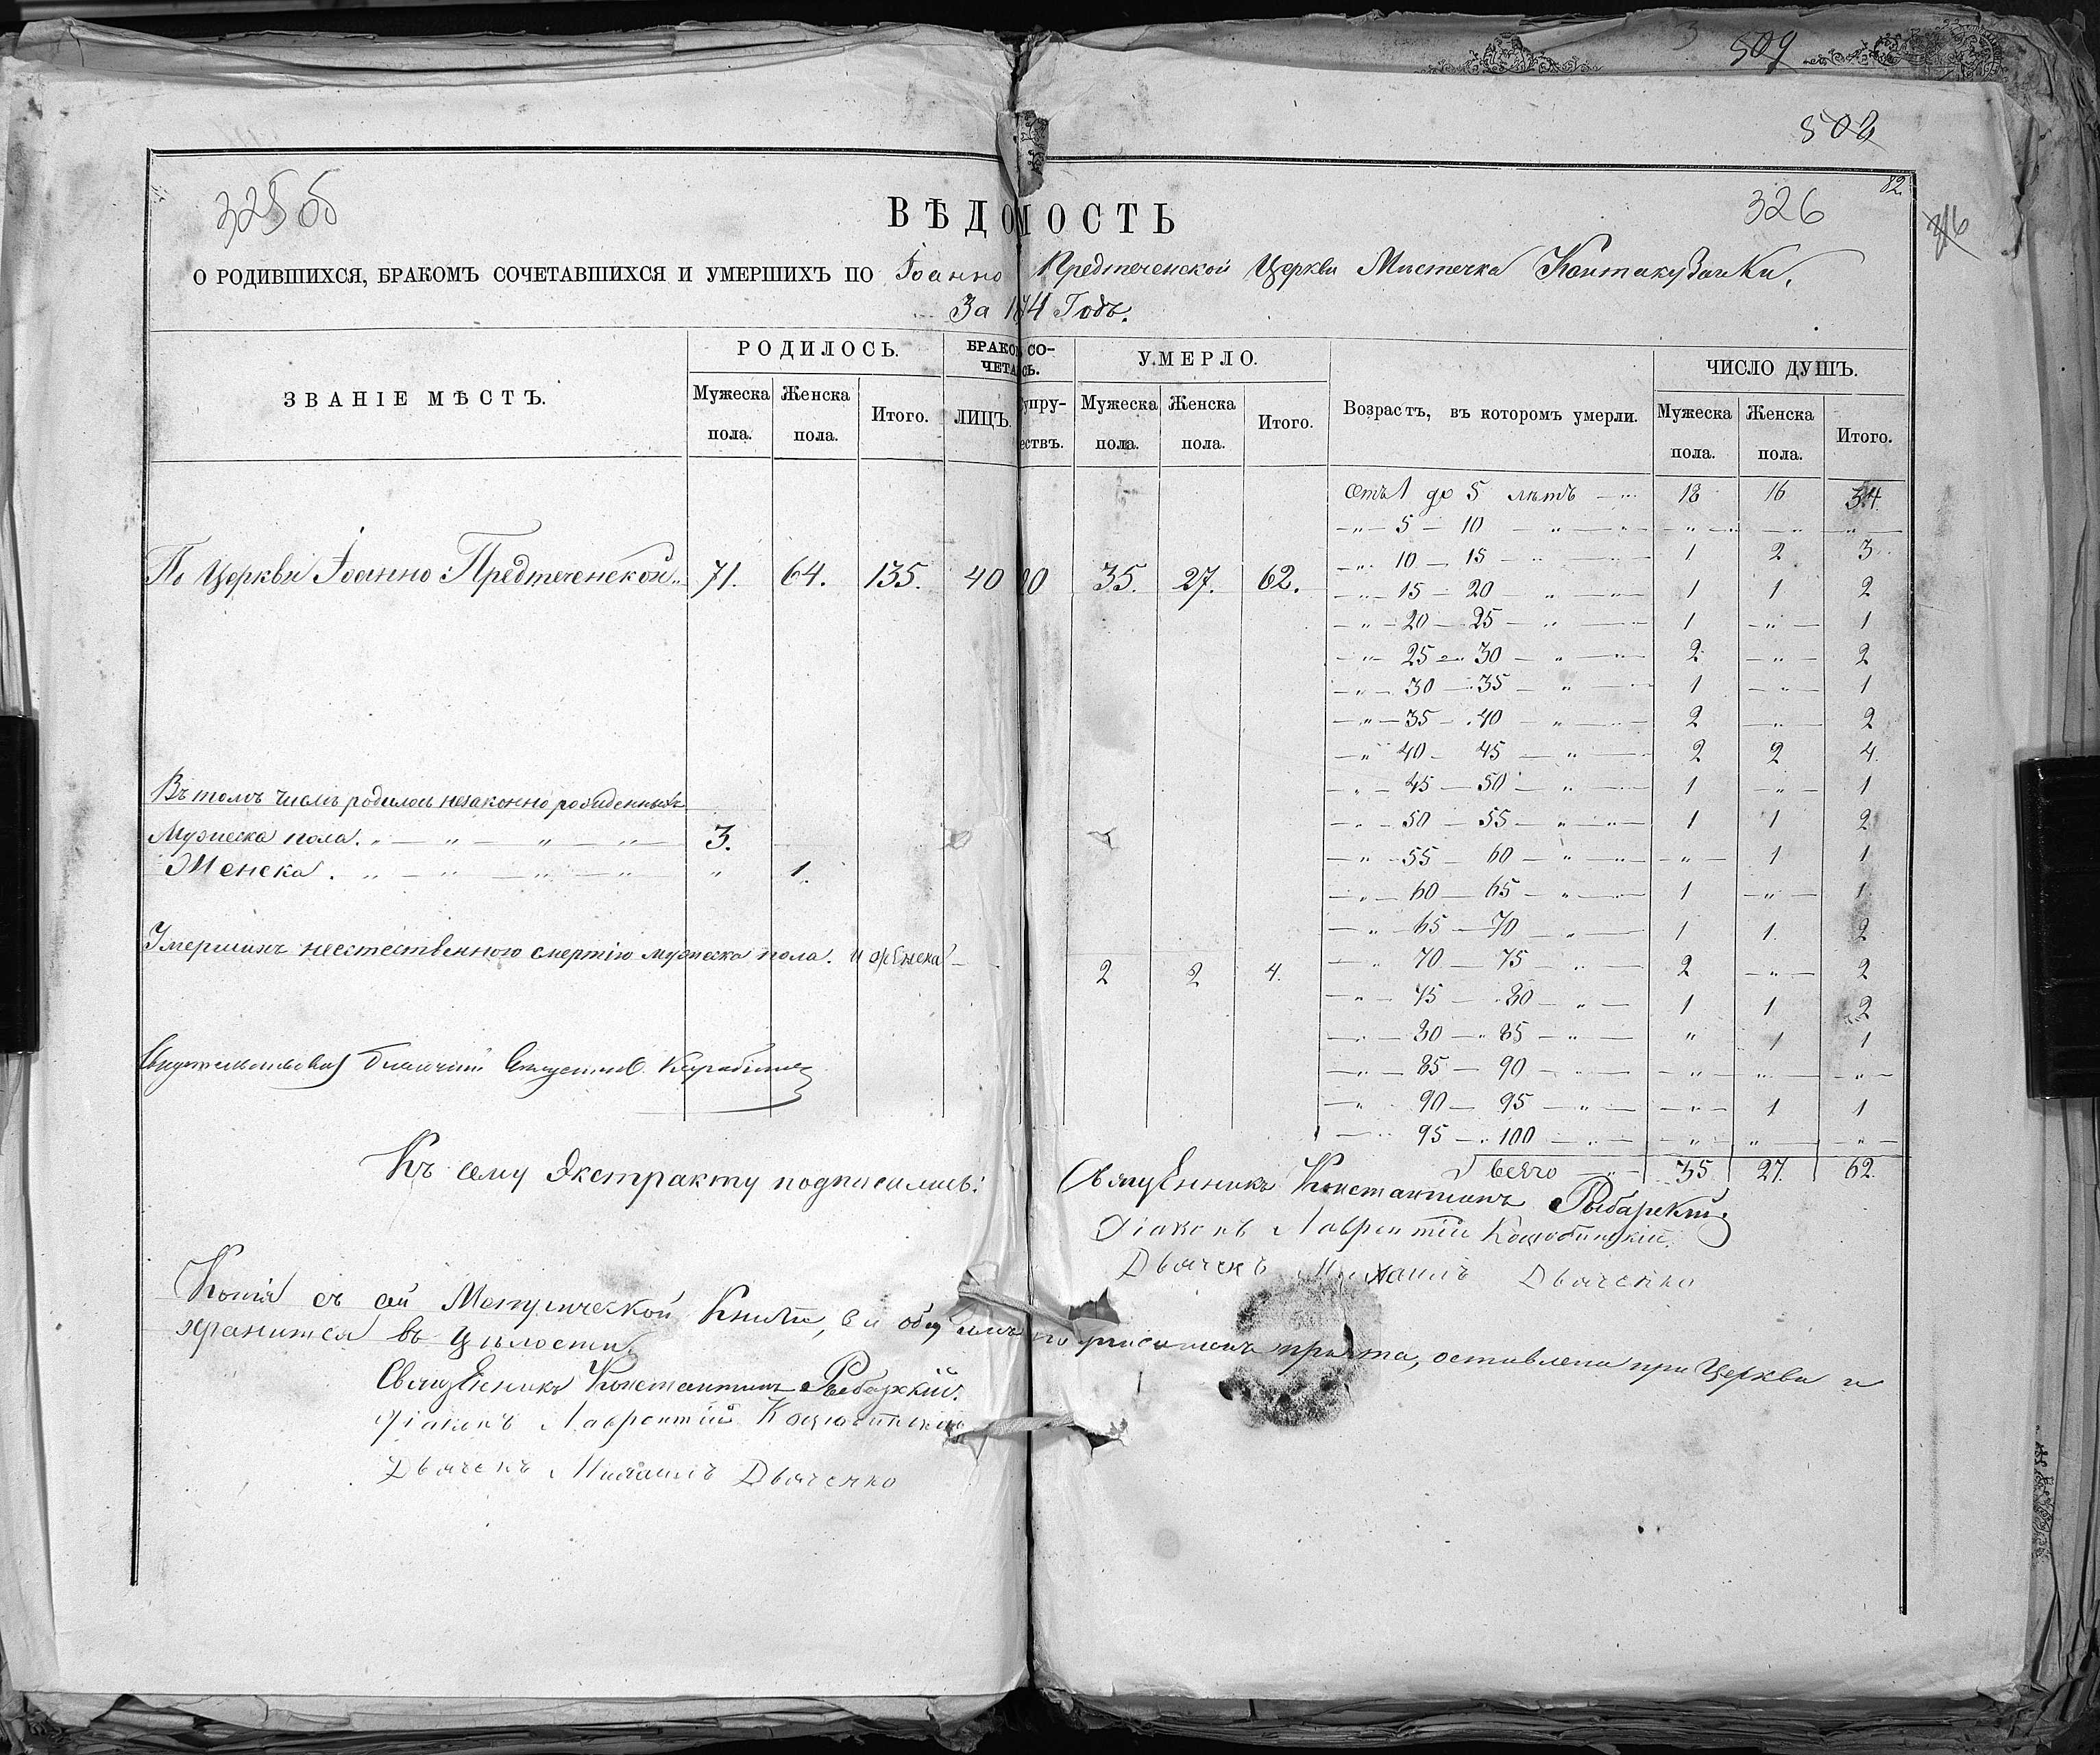 509
502
82.
325об
326
ВѢДОМОСТЬ
О РОДИВШИХСЯ, БРАКОМЪ СОЧЕТАВШИХСЯ И УМЕРШИХЪ ПО Іоанно Предтеченской Церкви Мистечка Кантакузинки,
За 1874 Годъ.
ЗВАНІЕ МѢСТЪ. РОДИЛОСЬ. БРАКОМ СО- УМЕРЛО. Возрастъ, въ которомъ умерли. ЧИСЛО ДУШЪ.
ЧЕТАСЬ.
Мужеска Женска Итого. ЛИЦЪ. упру- Мужеска Женска Итого. Мужеска Женска Итого.
пола. пола. ествъ. пола. пола. пола. пола.
Отъ 1 до 5 лѣтъ — " 18 16 34.
— " — 5 — 10 — " — " — " — — " — — " —
— " 10 — 15 — " — 1 2 3
По Церкви Іоанно Предтеченской " 71. 64. 135. 40 20 35. 27. 62.
— " — 15 — 20 — " — " 1 1 2
— " — 20 — 25 — " — 1 — " — 1
— " — 25 — 30 — " — " 2 — " — 2
— " — 30 — 35 — " — " 1 — " — 1
— " — 35 — 40 — " — " 2 — " — 2
— " 40 — 45 — " — 2 2 4
— " — 45 — 50 — " — 1 — " — 1
Въ томъ числѣ родилось незаконно рожденныхъ
— " — 50 — 55 — " — " 1 1 2
Мужеска пола. " — " — " — " — 3.
— " — 55 — 60 — " — " — " — 1 1
Женска . " — " — " — " — " 1.
— " — 60 — 65 — " — 1 — " — 1
— " — 65 — 70 — " — 1 1. 2
Умершихъ неестественною смертію мужеска пола. и женска — 2 2 4.
— " 70 — 75 — " — 2 — " — 2
— " — 75 — 80 — " — 1 1 2
— " — 80 — 85 — " — " 1 1
— " — 85 — 90 — " — — " — — " — — " —
— " 90 — 95 — " — — " — 1 1
— " 95 — 100 — " — — " — " — — " —
Всего — " — 35 27. 62.
Къ сему Экстракту подписались:
Священникъ Константинъ Рыбарскій.
Діаконъ Лаврентій
Дьячекъ Михаилъ Дьяченко
Копія съ сей Метрической Книги, за общимъ подписомъ причта, оставлена при Церкви и
хранится въ цѣлости.
Священникъ Константинъ Рыбарскій.
Діаконъ Лаврентій
Дьячекъ Михаилъ Дьяченко